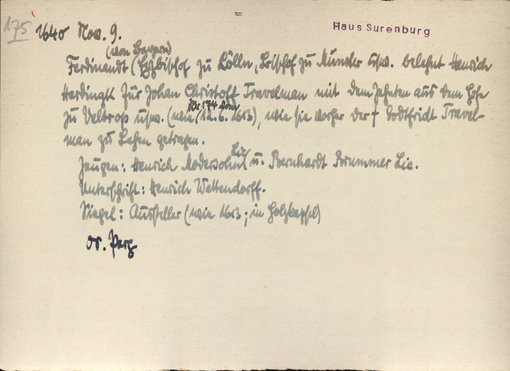 175 1640 Nov. 9. Haus Surenburg
(von Bayern)
Ferdinandt (Erzbischof zu Cölln, Bischof zu Münster usw. belehnt Henrich
Herdingk für Johan Christoff Travelman mit dem Zehnten aus dem Hofe
zu Veltrop usw. (wie 12.6.1613), wie sie vorher der † Godtfridt Travel-
man zu Lehen getragen.
Zeugen: Henrich Modersohn Lic u. Bernhardt Brummer Lic.
Unterschrift: Henrich Wettendorff.
Siegel: Aussteller (wie 1613; in Holzkapsel)
Or. Perg